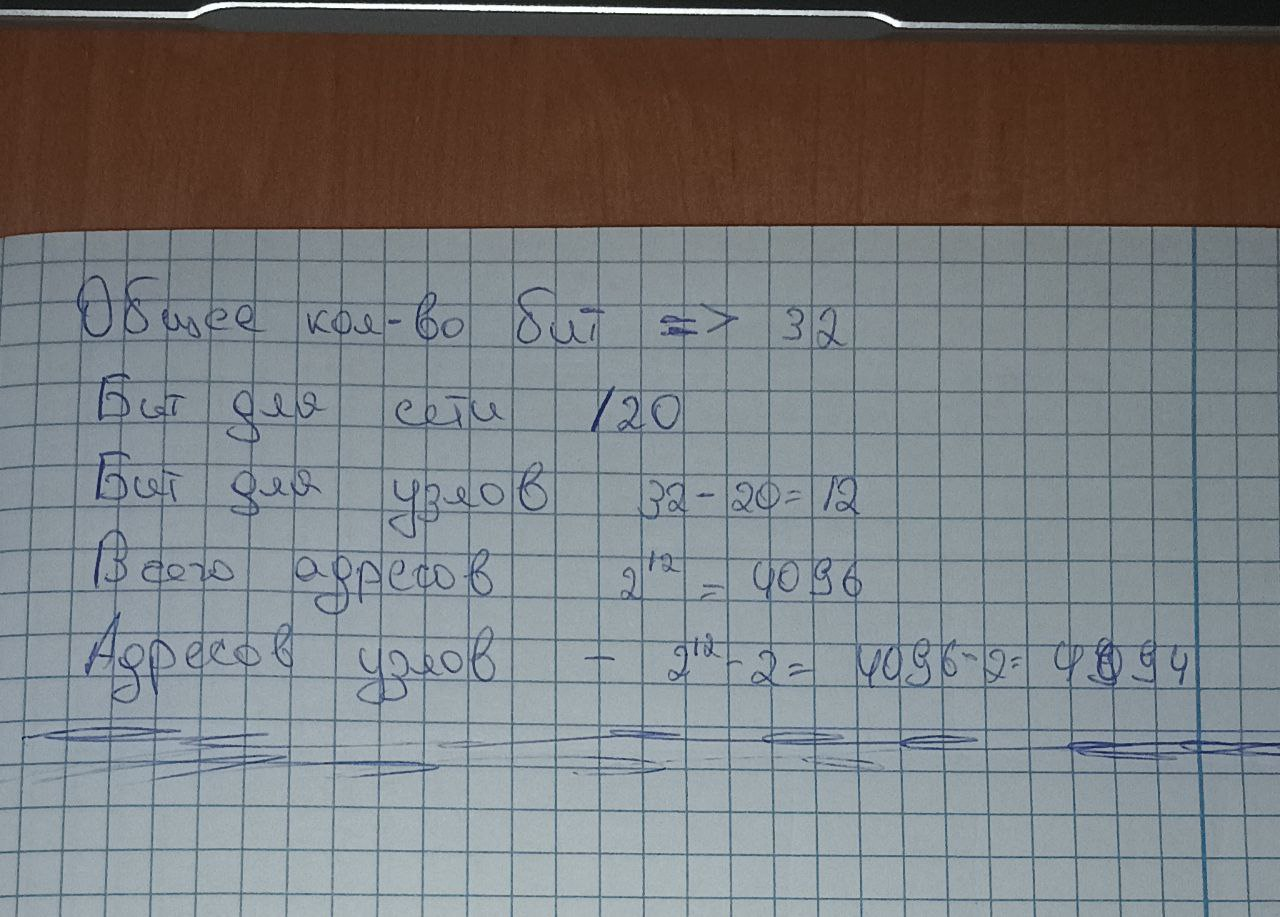 Общее кол-во бит => 32
Бит для сети /20
Бит для узлов 32-20=12
Всего адресов 2¹² = 4096
Адресов узлов - 2¹²-2= 4096-2= 4094